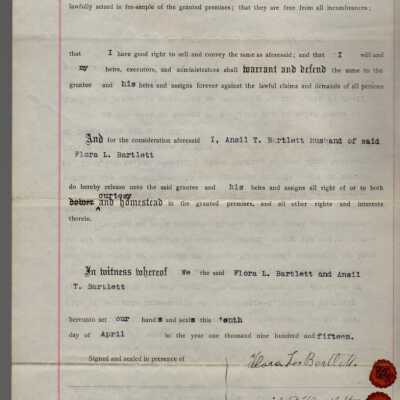 lawfully seized in fee-simple of the granted premises; that they are free from all incumbrances;
that I have good right to sell and convey the same as aforesaid; and that I will and
my heirs, executors, and administrators shall warrant and defend the same to the
grantee and his heirs and assigns forever against the lawful claims and demands of all persons
And for the consideration aforesaid I, Ansil T. Bartlett Husband of said
Flora L. Bartlett
do hereby release unto the said grantee and his heirs and assigns all right of or to both
courtesy
dower and homestead in the granted premises, and all other rights and interests
therein.
In witness whereof We the said Flora L. Bartlett and Ansil
T. Bartlett
hereunto set our hands and seals this tenth
day of April in the year one thousand nine hundred and fifteen.
Signed and sealed in presence of
Flora L. Bartlett